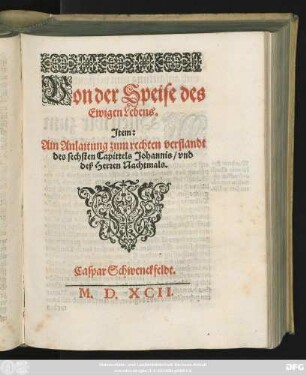 Von der Speise des
Ewigen Lebens.
Item:
Ain Anlaitung zum rechten verstandt
des sechsten Capittels Johannis / vnd
deß Herren Nachtmals.
Caspar Schwenckfeldt.
M. D. XCII.